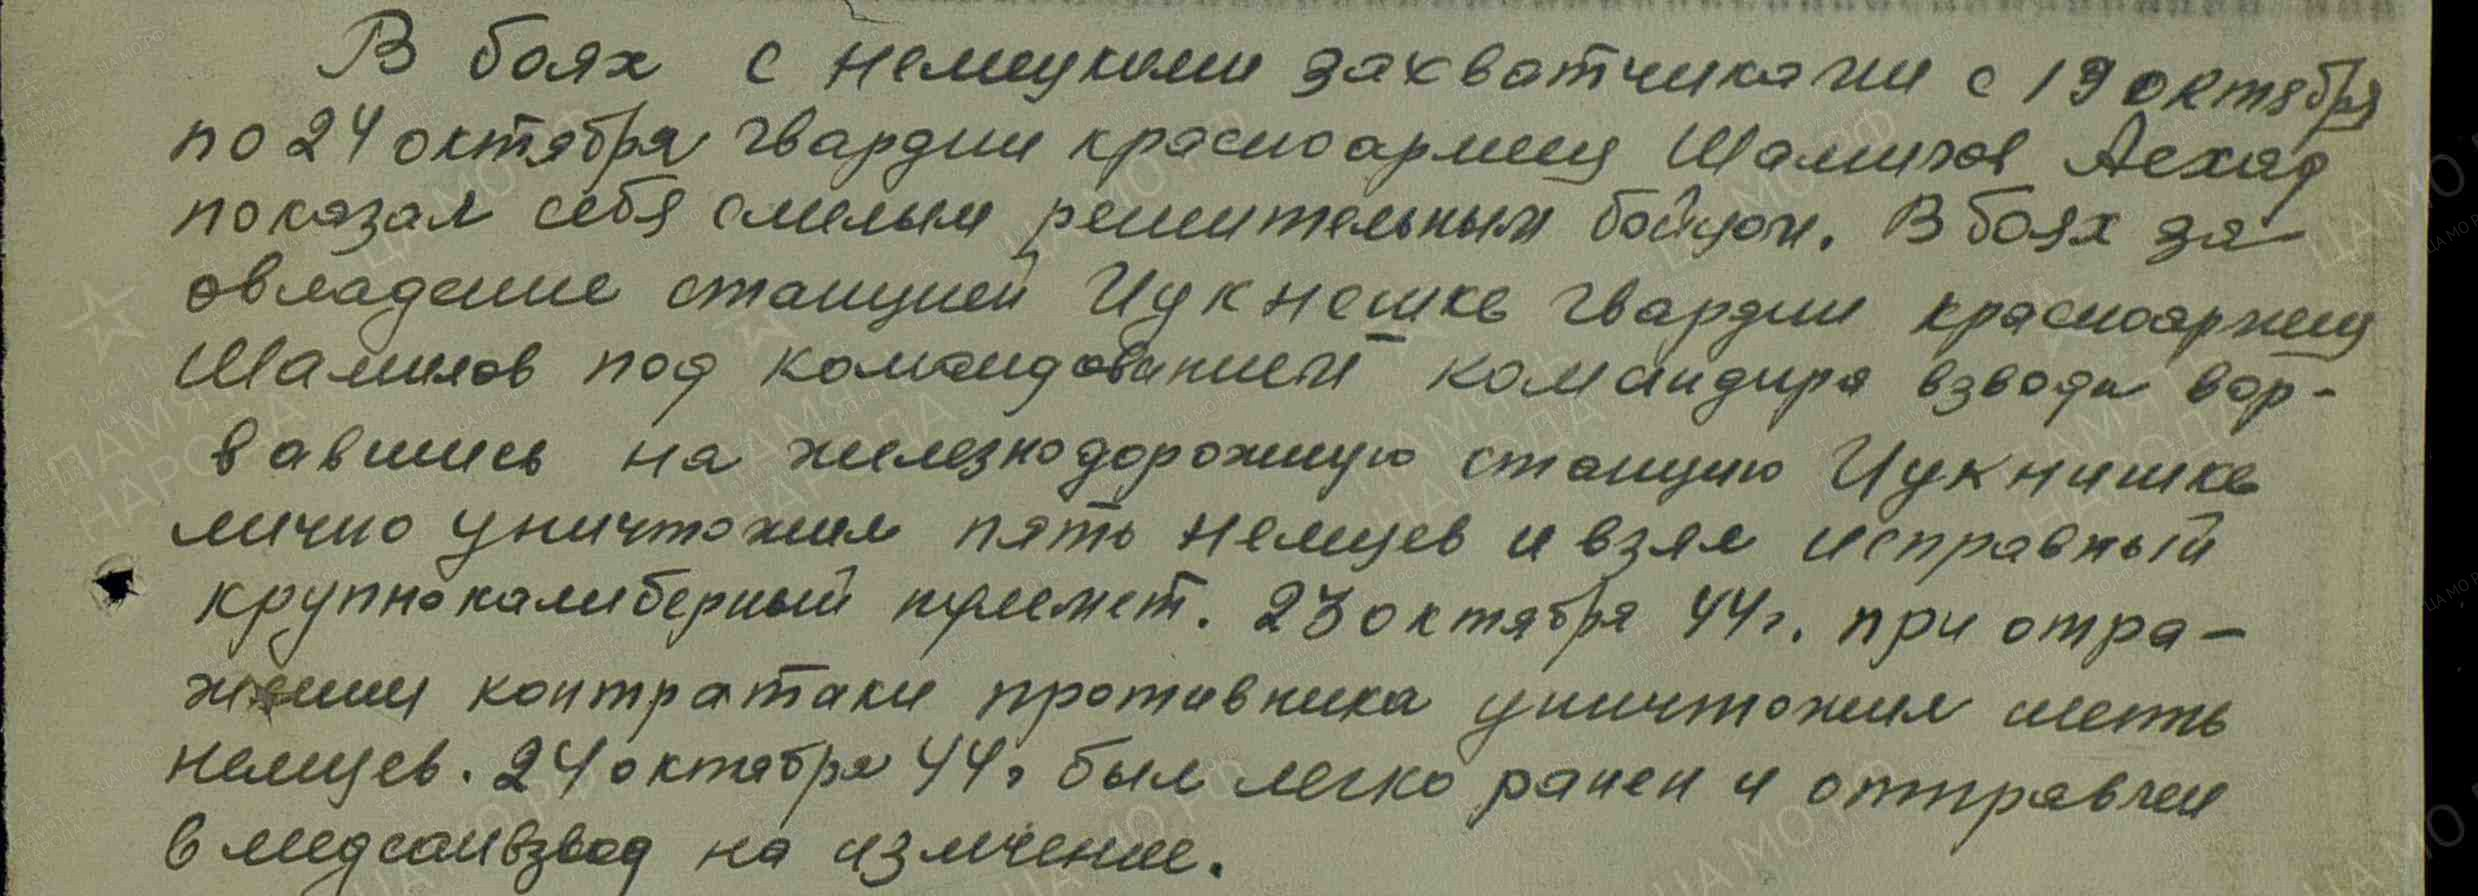 В боях с немецкими захватчиками с 19 октября
по 24 октября гвардии красноармеец Шамилов Асхад
показал себя смелым решительным бойцом. В боях за
овладение станцией Цукнешке гвардии красноармеец
Шамилов под командованием командира взвода вор-
вавшись на железнодорожную станцию Цукнишке
лично уничтожил пять немцев и взял исправный
крупнокалиберный пулемет. 23 октября 44г. при отра-
жении контратаки противника уничтожил шесть
немцев. 24 октября 44г был легко ранен и отправлен
в медсанвзвод на излечение.